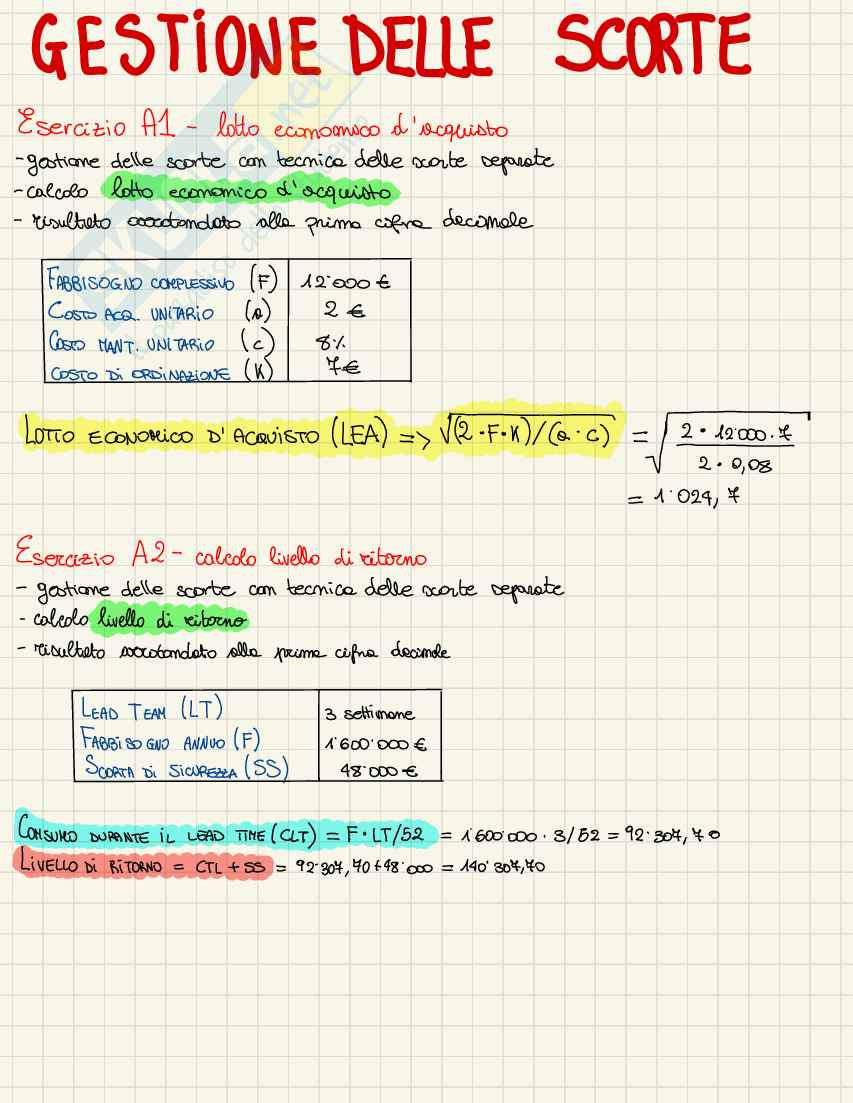 GESTIONE DELLE SCORTE
Esercizio A1 - lotto economico d'acquisto
- gestione delle scorte con tecnica delle scorte separate
- calcolo lotto economico d'acquisto
- risultato arrotondato alla prima cifra decimale
FABBISOGNO COMPLESSIVO (F) 12'000 €
COSTO ACQ. UNITARIO (a) 2 €
COSTO MANT. UNITARIO (c) 8%
COSTO DI ORDINAZIONE (K) 7€
LOTTO ECONOMICO D'ACQUISTO (LEA) => √(2·F·K)/(a·c) = √ 2·12'000·7 / 2·0,08
= 1'024,7
Esercizio A2 - calcolo livello di ritorno
- gestione delle scorte con tecnica delle scorte separate
- calcolo livello di ritorno
- risultato arrotondato alla prima cifra decimale
LEAD TEAM (LT) 3 settimane
FABBISOGNO ANNUO (F) 1'600'000 €
SCORTA DI SICUREZZA (SS) 48'000 €
CONSUMO DURANTE IL LEAD TIME (CLT) = F·LT/52 = 1'600'000 · 3/52 = 92'307,70
LIVELLO DI RITORNO = CTL + SS = 92'307,70+48'000 = 140'307,70